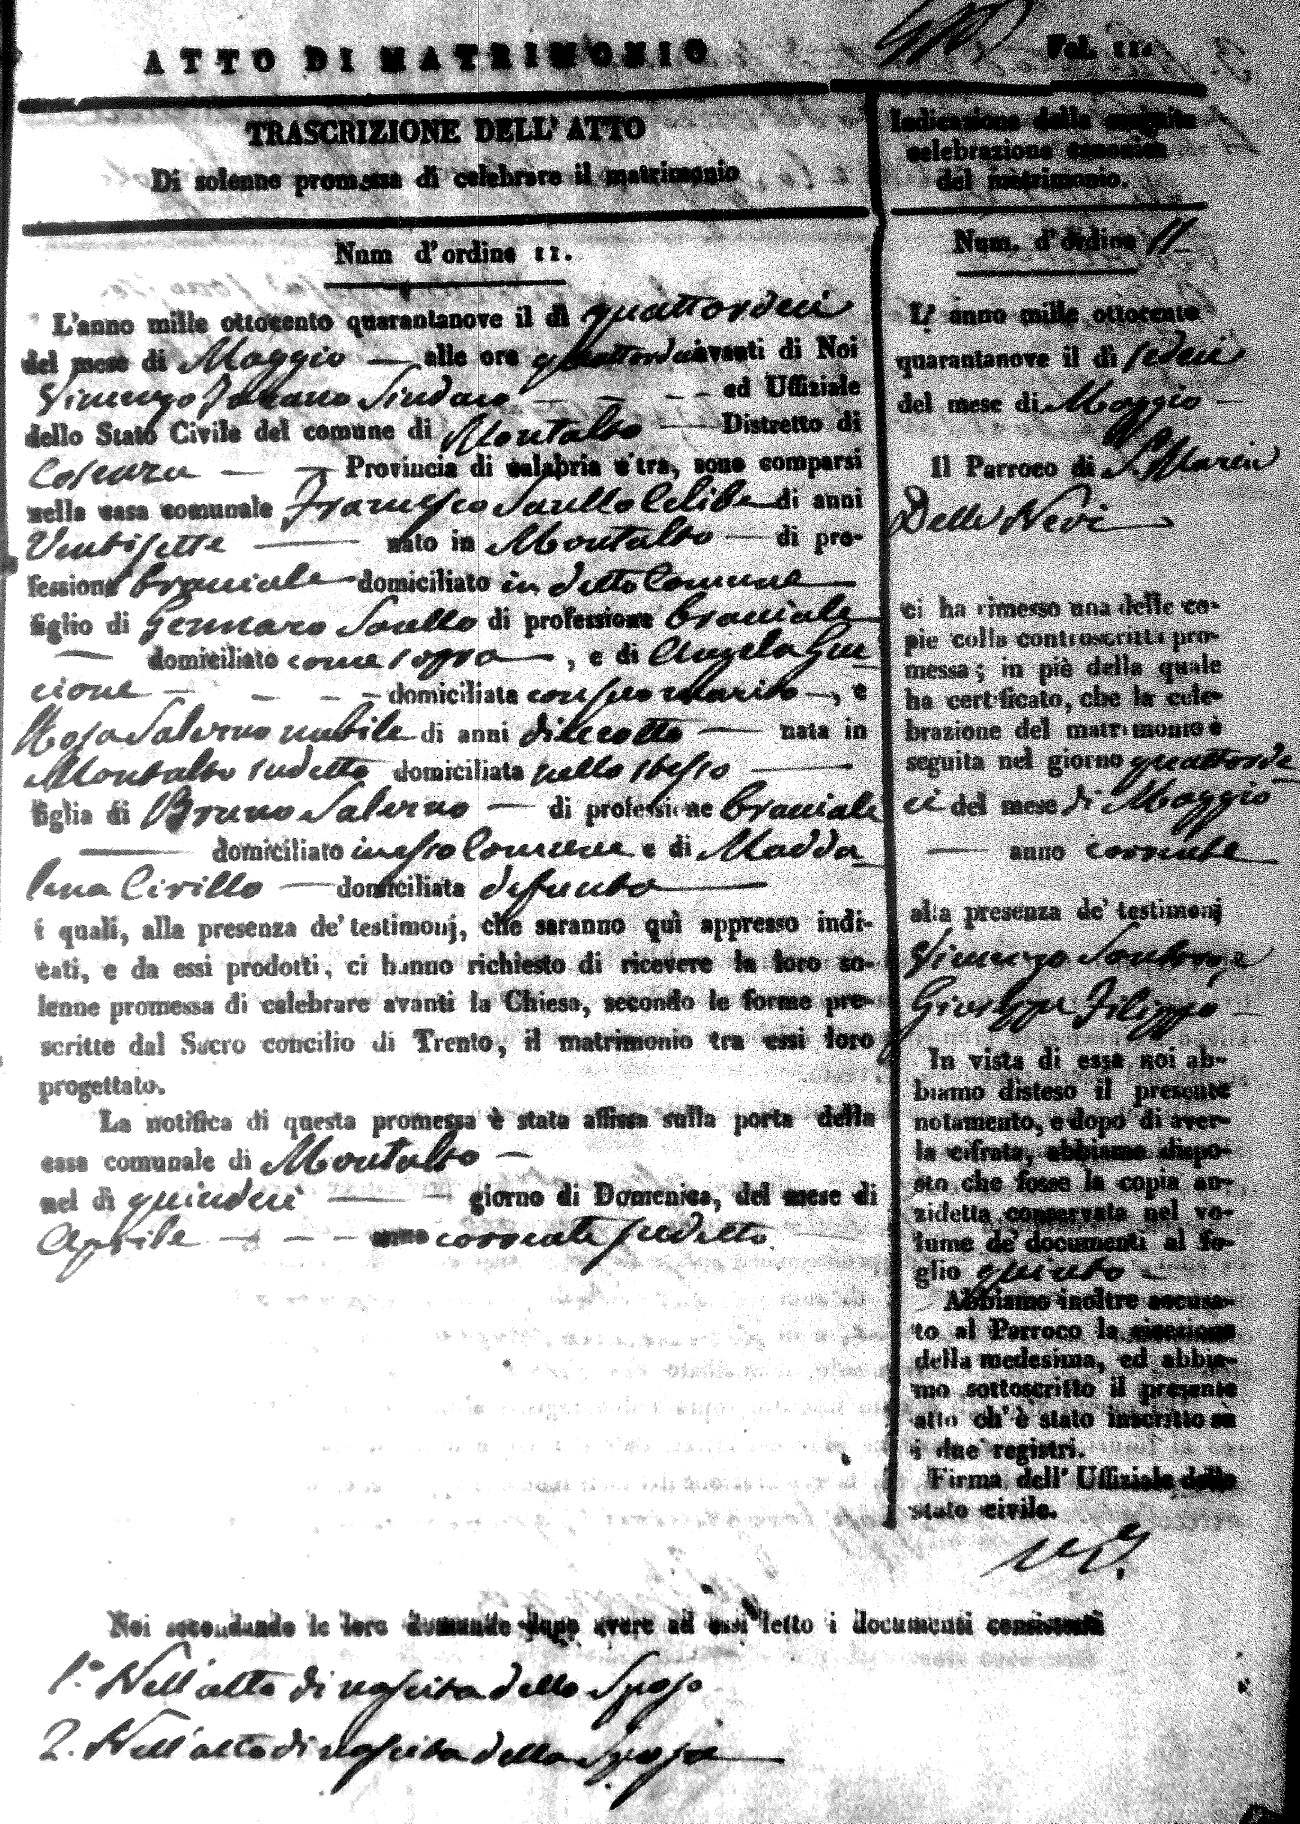 ATTO DI MATRIMONIO
Fol. 11.
TRASCRIZIONE DELL' ATTO
Di solenne promessa di celebrare il matrimonio
Num d'ordine 11.
L'anno mille ottocento quarantanove il dì quattordeci
del mese di Maggio — alle ore quattordici avanti di Noi
Vincenzo Sindaco — — — ed Uffiziale
dello Stato Civile del comune di Montalto — Distretto di
Cosenza — — Provincia di calabria c'tra, sono comparsi
nella casa comunale Francesco Saullo Celibe di anni
Ventisette — nato in Montalto — di pro-
fessione Bracciale domiciliato in detto Comune
figlio di Gennaro Saullo di professione Bracciale
— domiciliato come sopra —, e di Angela Gui
cione — — — — domiciliata con suo marito —, e
Rosa Salerno nubile di anni dieciotto — nata in
Montalto sudetto domiciliata nello stesso —
figlia di Bruno Salerno — di professione Bracciale
— domiciliato in esso Comune e di Madda
lena Cirillo — domiciliata defunta —
i quali, alla presenza de' testimonj, che saranno quì appresso indi-
cati, e da essi prodotti, ci hanno richiesto di ricevere la loro so-
lenne promessa di celebrare avanti la Chiesa, secondo le forme pre-
scritte dal Sacro concilio di Trento, il matrimonio tra essi loro
progettato.
La notifica di questa promessa è stata affissa sulla porta della
casa comunale di Montalto —
nel dì quindeci — — giorno di Domenica, del mese di
Aprile — — — anno corrente sudetto
Indicazione della seguita
celebrazione canonica
del matrimonio.
Num. d'ordine 11
L' anno mille ottocento
quarantanove il dì sedeci
del mese di Maggio —
Il Parroco di S. Maria
Della Nevi
ci ha rimesso una delle co-
pie colla controscritta pro-
messa; in piè della quale
ha certificato, che la cele-
brazione del matrimonio è
seguita nel giorno quattorde
ci del mese di Maggio
— anno corrente
alla presenza de' testimonj
Vincenzo
Giuseppe Filippo —
In vista di essa noi ab-
biamo disteso il presente
notamento, e dopo di aver-
la cifrata, abbiamo dispo-
sto che fosse la copia an-
zidetta conservata nel vo-
lume de' documenti al fo-
glio quinto —
Abbiamo inoltre accusa-
to al Parroco la ricezione
della medesima, ed abbia-
mo sottoscritto il presente
atto ch'è stato inscritto su
i due registri.
Firma dell' Uffiziale dello
stato civile.
Noi secondando le loro domande dopo avere ad essi letto i documenti consistenti
1.° Nell'atto di nascita dello Sposo
2. Nell'atto di nascita della Sposa —